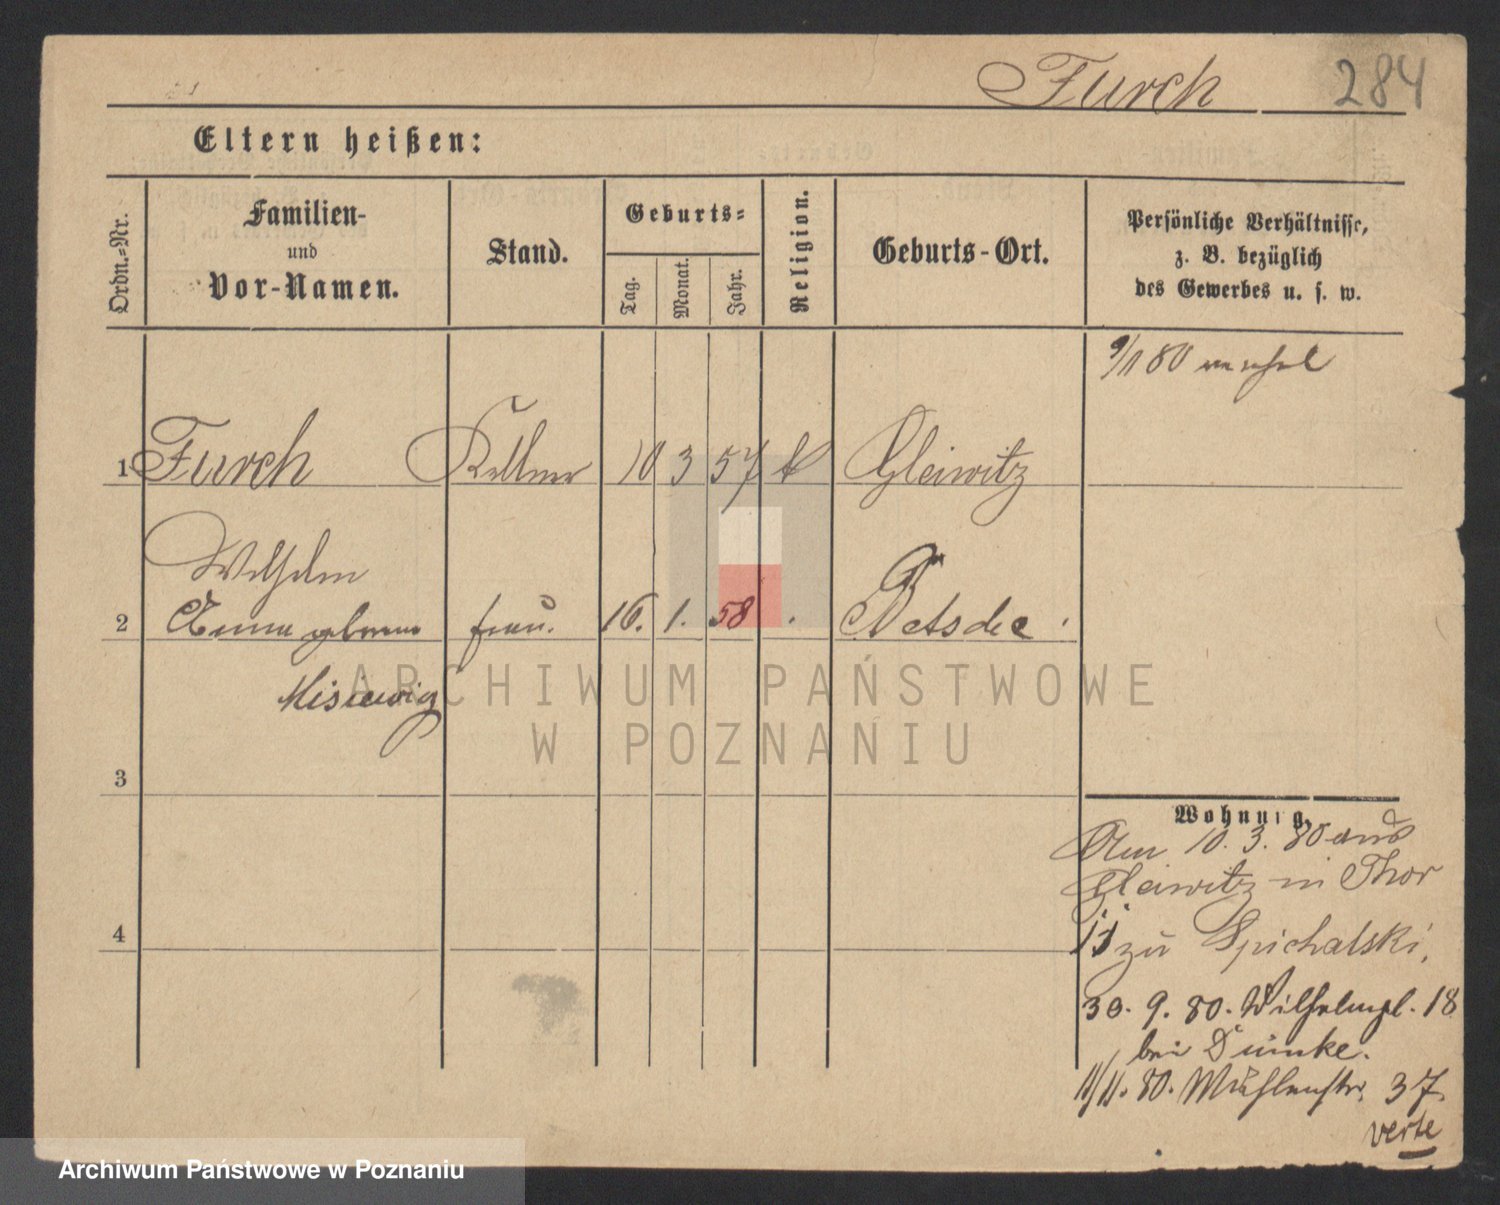 Furch 284
Eltern heißen:
Ordn.-Nr.
Familien-
und
Vor-Namen.
Stand.
Geburts-
Tag.
Monat.
Jahr.
Religion.
Geburts-Ort.
Persönliche Verhältnisse,
z. B. bezüglich
des Gewerbes u. s. w.
9/1 80
1 Furch Kellner 10 3 57 k Gleiwitz
Wilhelm
2 Anna geborene frau. 16. 1. 58
3
Wohnung
Am 10. 3. 80 aus
Gleiwitz in Thor
11 zu Spichalski,
4
30. 9. 80. Wilhelmpl. 18
bei Dümke.
11/11. 80. Mühlenstr. 37
verte
ARCHIWUM PAŃSTWOWE
W POZNANIU
Archiwum Państwowe w Poznaniu